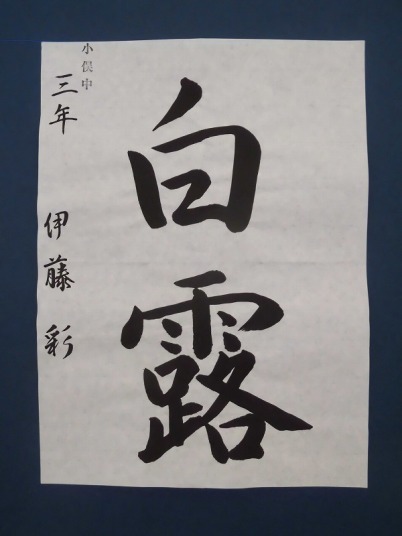 白露
小俣中
三年 伊藤彩